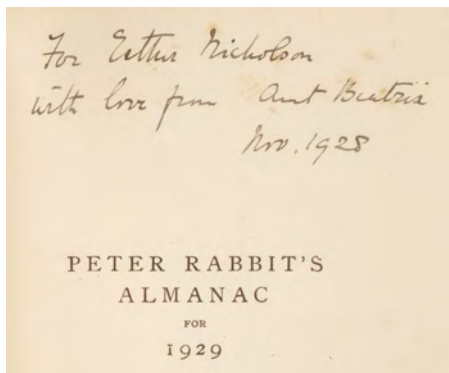 For Esther Nicholson
with love from Aunt Beatrix
Nov. 1928
PETER RABBIT'S
ALMANAC
FOR
1929